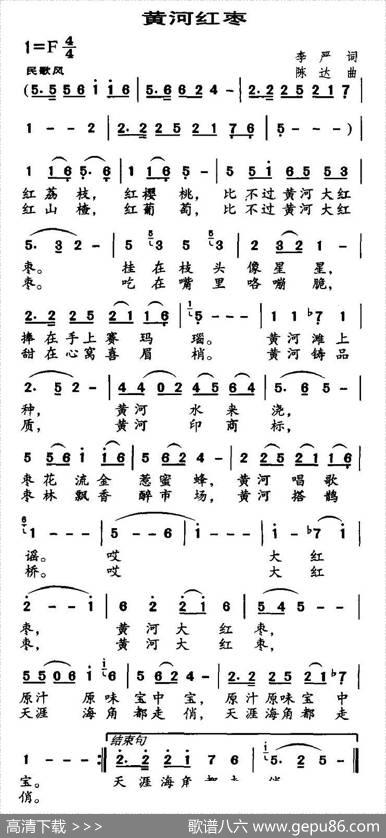 黄河红枣
1=F 4/4
民歌风
李严 词
陈达 曲
(5. 5 5 6 1 1 6 | 5. 6 6 2 4 - | 2. 2 2 5 2 1 7
1 - - 2 | 2. 2 2 5 2 1 7 6 | 5 - - - )
1 1 6 5. 6 | 1 1 6 5 - | 5 5 1 6 5 5 3
红荔枝, 红樱桃, 比不过黄河大红
红山楂, 红葡萄, 比不过黄河大红
5. 3 2 - | 5 3 5 3 | 2 3 2 1 -
枣。 挂在枝头像星星,
枣。 吃在嘴里咯嘣脆,
2. 2 2 5 2 1 1 6 | 5 - - - | 1 1 b7 1
捧在手上赛玛瑙。 黄河滩上
甜在心窝喜眉梢。 黄河铸品
2. 5 2 - | 4 4 0 2 4 5 6 4 | 5. 6 5 -
种, 黄河 水来浇,
质, 黄河 印商标,
5 5 6 1 6 1 | 5 6 5 2 4 - | 2 2 5 2 1 1 6
枣花流金惹蜜蜂, 黄河唱歌
枣林飘香醉市场, 黄河搭鹊
1 - - - | 5 - - 6 | 1 - - - | 1 - b7 1
谣。 哎 大红
桥。 哎 大红
2 - - 1 | 6 2 2 1 6 | 5 4 5 -
枣, 黄河大红枣,
枣, 黄河大红枣,
5 5 0 6 1 6 5 | 5 6 5 2 4 - | 2. 2 2 5 2 1 b7
原汁 原味宝中宝, 原汁原味宝中
天涯 海角都走俏, 天涯海角都走
1 - - - :| 结束句 2. 2 2 1 7 6 | 5. 5 - - |
宝。 天涯海角都走俏
俏。
高清下载 >>>
歌谱八六 www.gepu86.com